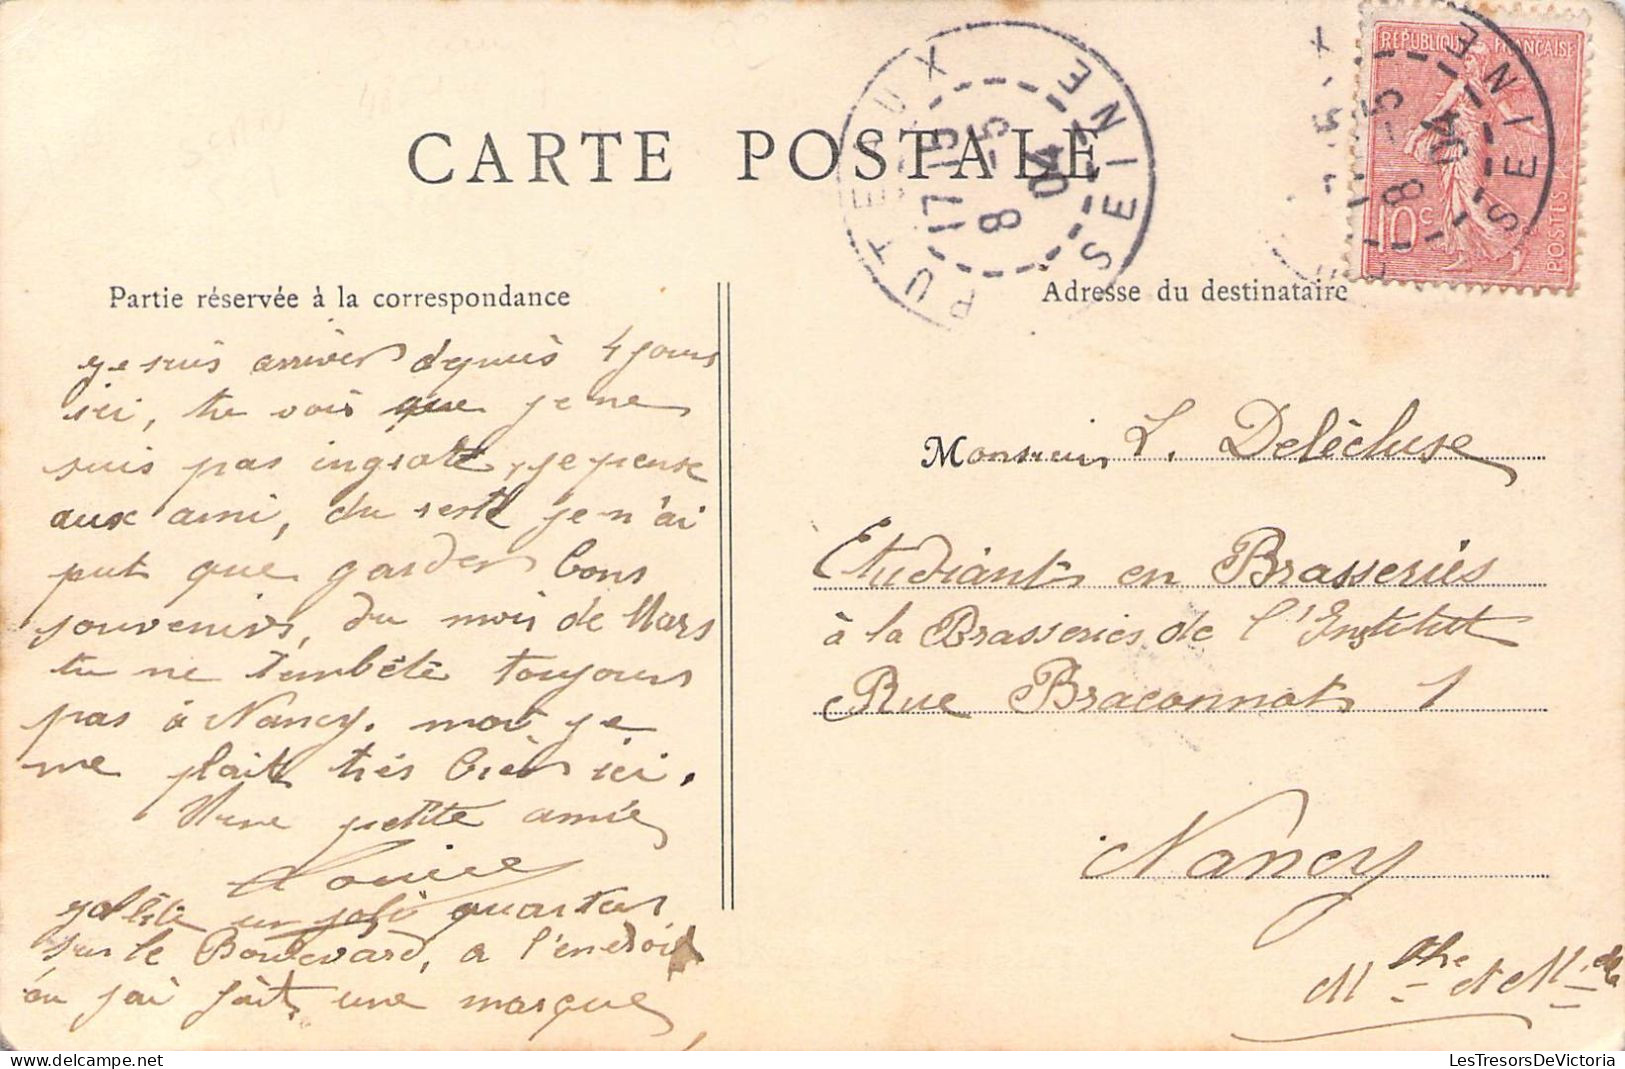 CARTE POSTALE
PUTEAUX SEINE
17 15
8 - 5
04
REPUBLIQUE FRANÇAISE
10 c
POSTES
8 - 5
04
SEINE
Partie réservée à la correspondance
Adresse du destinataire
je suis arriver depuis 4 jours
ici, tu vois que je ne
suis pas ingrate, je pense
aux ami, du reste je n'ai
put que garder bons
souvenirs, du mois de Mars
tu ne t'embêtè toujours
pas à Nancy. moi je
me plait très bien ici.
Une petite amie
Louise
j'abite un joli quartier
sur le Boulevard, a l'endroit
ou j'ai fait une marque
Monsieur L. Delécluse
Etudiant en Brasseries
à la Brasseries de l'Institut
Rue Braconnot 1
Nancy
Mthe et Mlle
LesTresorsDeVictoria